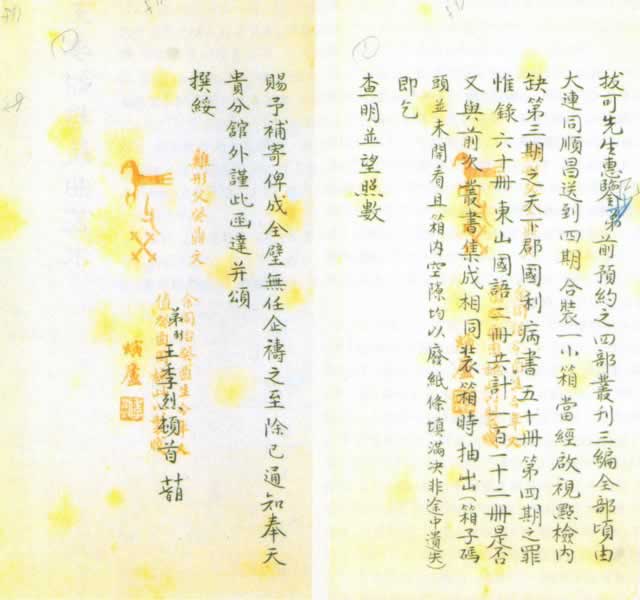 拔可先生惠鑒弟前預約之四部叢刊三編全部頃由
大連同順昌送到四期合裝一小箱當經啟視點檢內
缺第三期之天下郡國利病書五十冊第四期之罪
惟錄六十冊東山國語二冊共計一百一十二冊是否
又與前次叢書集成相同裝箱時抽出(箱子碼
頭並未開看且箱內空隙均以廢紙條填滿決非途中遺失)
即乞
查明並望照數
賜予補寄俾成全璧無任企禱之至除已通知奉天
貴分館外謹此函達并頌
撰綏
雞形父癸鼎文
弟制王季烈頓首
螾廬